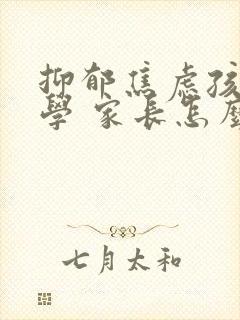 抑郁焦虑孩
學 家长怎麼
七月太和